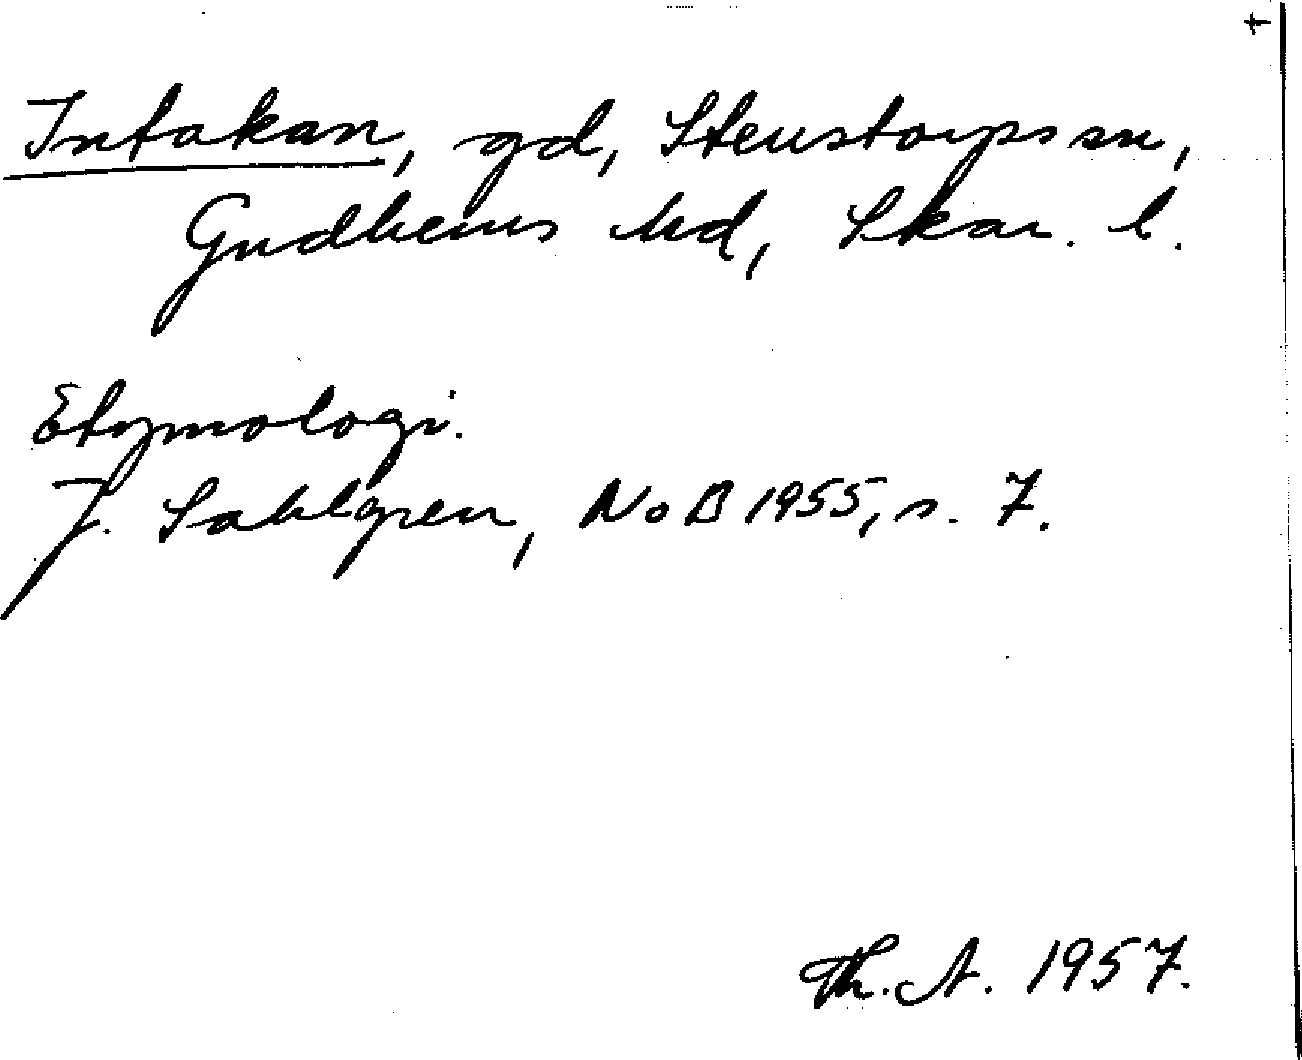 Intakan, gd, Stenstorps sn,
Gudhems hd, Skar. l.
Etymologi.
J. Sahlgren, NoB 1955, s. 7.
Th. A. 1957.